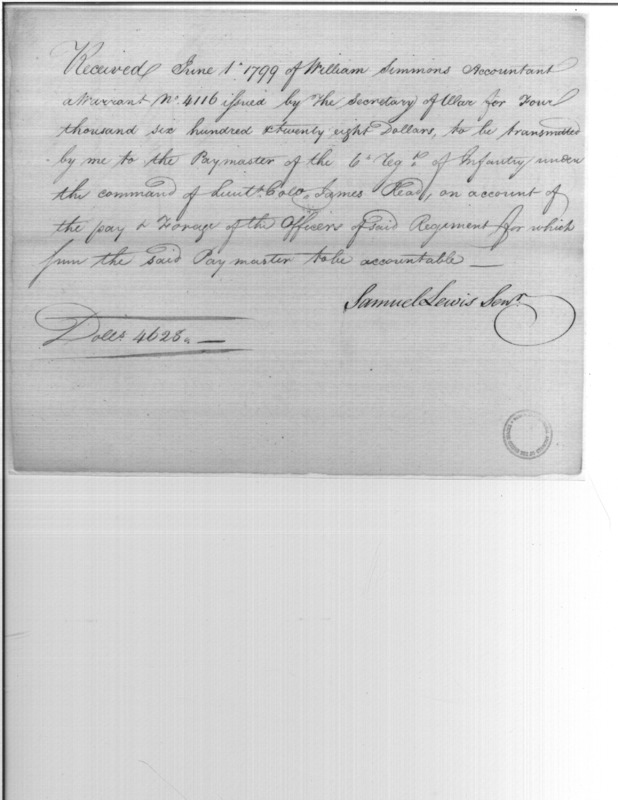 Received June 1st 1799 of William Simmons Accountant
a Warrant No. 4116 issued by the Secretary of War for Four
thousand six hundred & twenty eight Dollars, to be transmitted
by me to the Paymaster of the 6th Regt. of Infantry under
the command of Lieut. Colo. James Read, on account of
the pay & Forage of the Officers of said Regiment for which
sum the said Paymaster to be accountable —
Samuel Lewis Senr.
Dolls. 4628. —